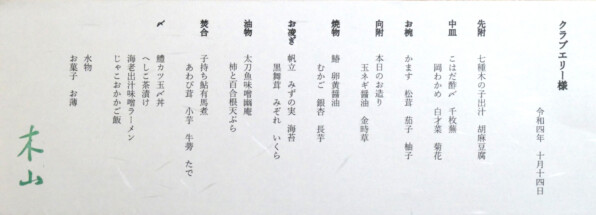 クラブエリー様
令和四年 十月十四日
先附 七種木の子出汁 胡麻豆腐
中皿 こはだ酢〆 千枚蕪
岡わかめ 白才菜 菊花
お椀 かます 松茸 茄子 柚子
向附 本日のお造り
玉ネギ醤油 金時草
焼物 鰆 卵黄醤油
むかご 銀杏 長芋
お凌ぎ 帆立 みずの実 海苔
黒舞茸 みぞれ いくら
油物 太刀魚味噌幽庵
柿と百合根天ぷら
焚合 子持ち鮎有馬煮
あわび茸 小芋 牛蒡 たで
〆 鱧カツ玉〆丼
へしこ茶漬け
海老出汁味噌ラーメン
じゃこおかかご飯
水物
お菓子 お薄
木山